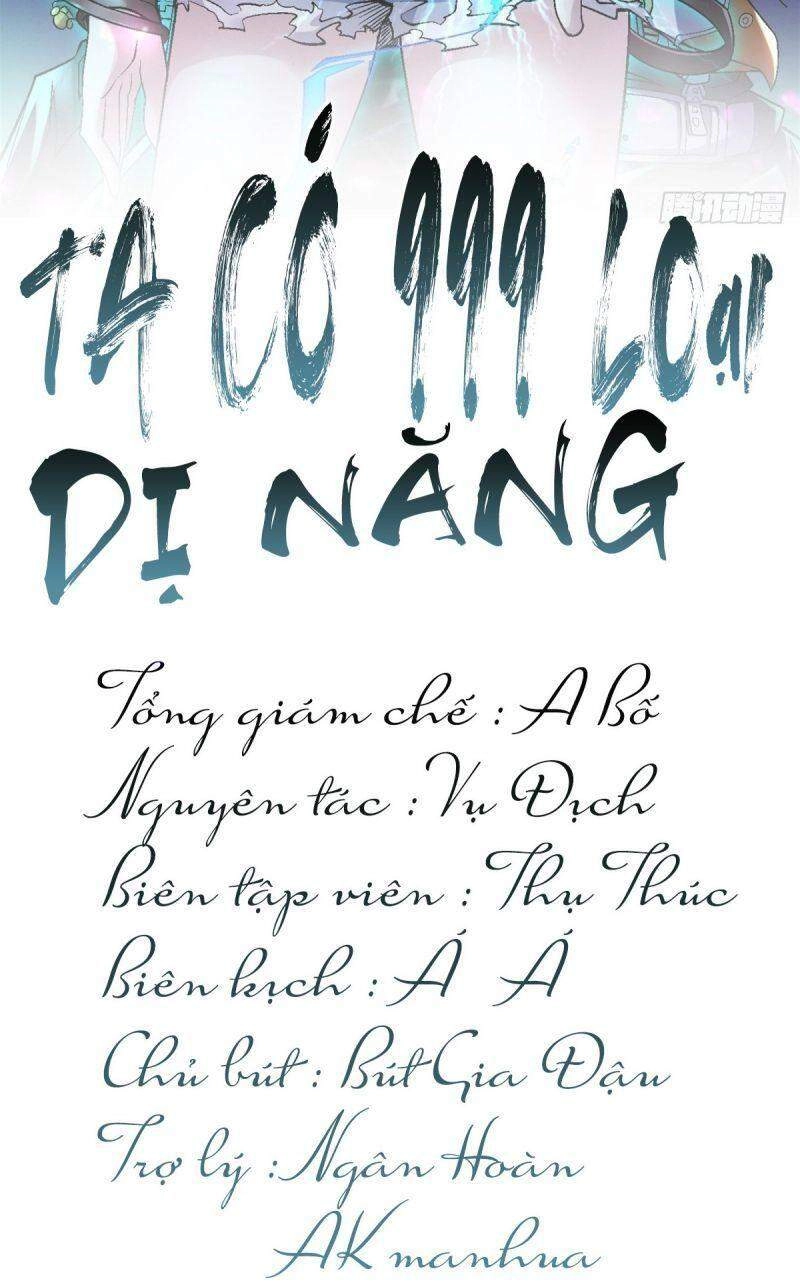 腾讯动漫
TA CÓ 999 LOẠI
DỊ NĂNG
Tổng giám chế : A Bố
Nguyên tác : Vụ Địch
Biên tập viên : Thụ Thúc
Biên kịch : Á Á
Chủ bút : Bút Gia Đậu
Trợ lý : Ngân Hoàn
AK manhua